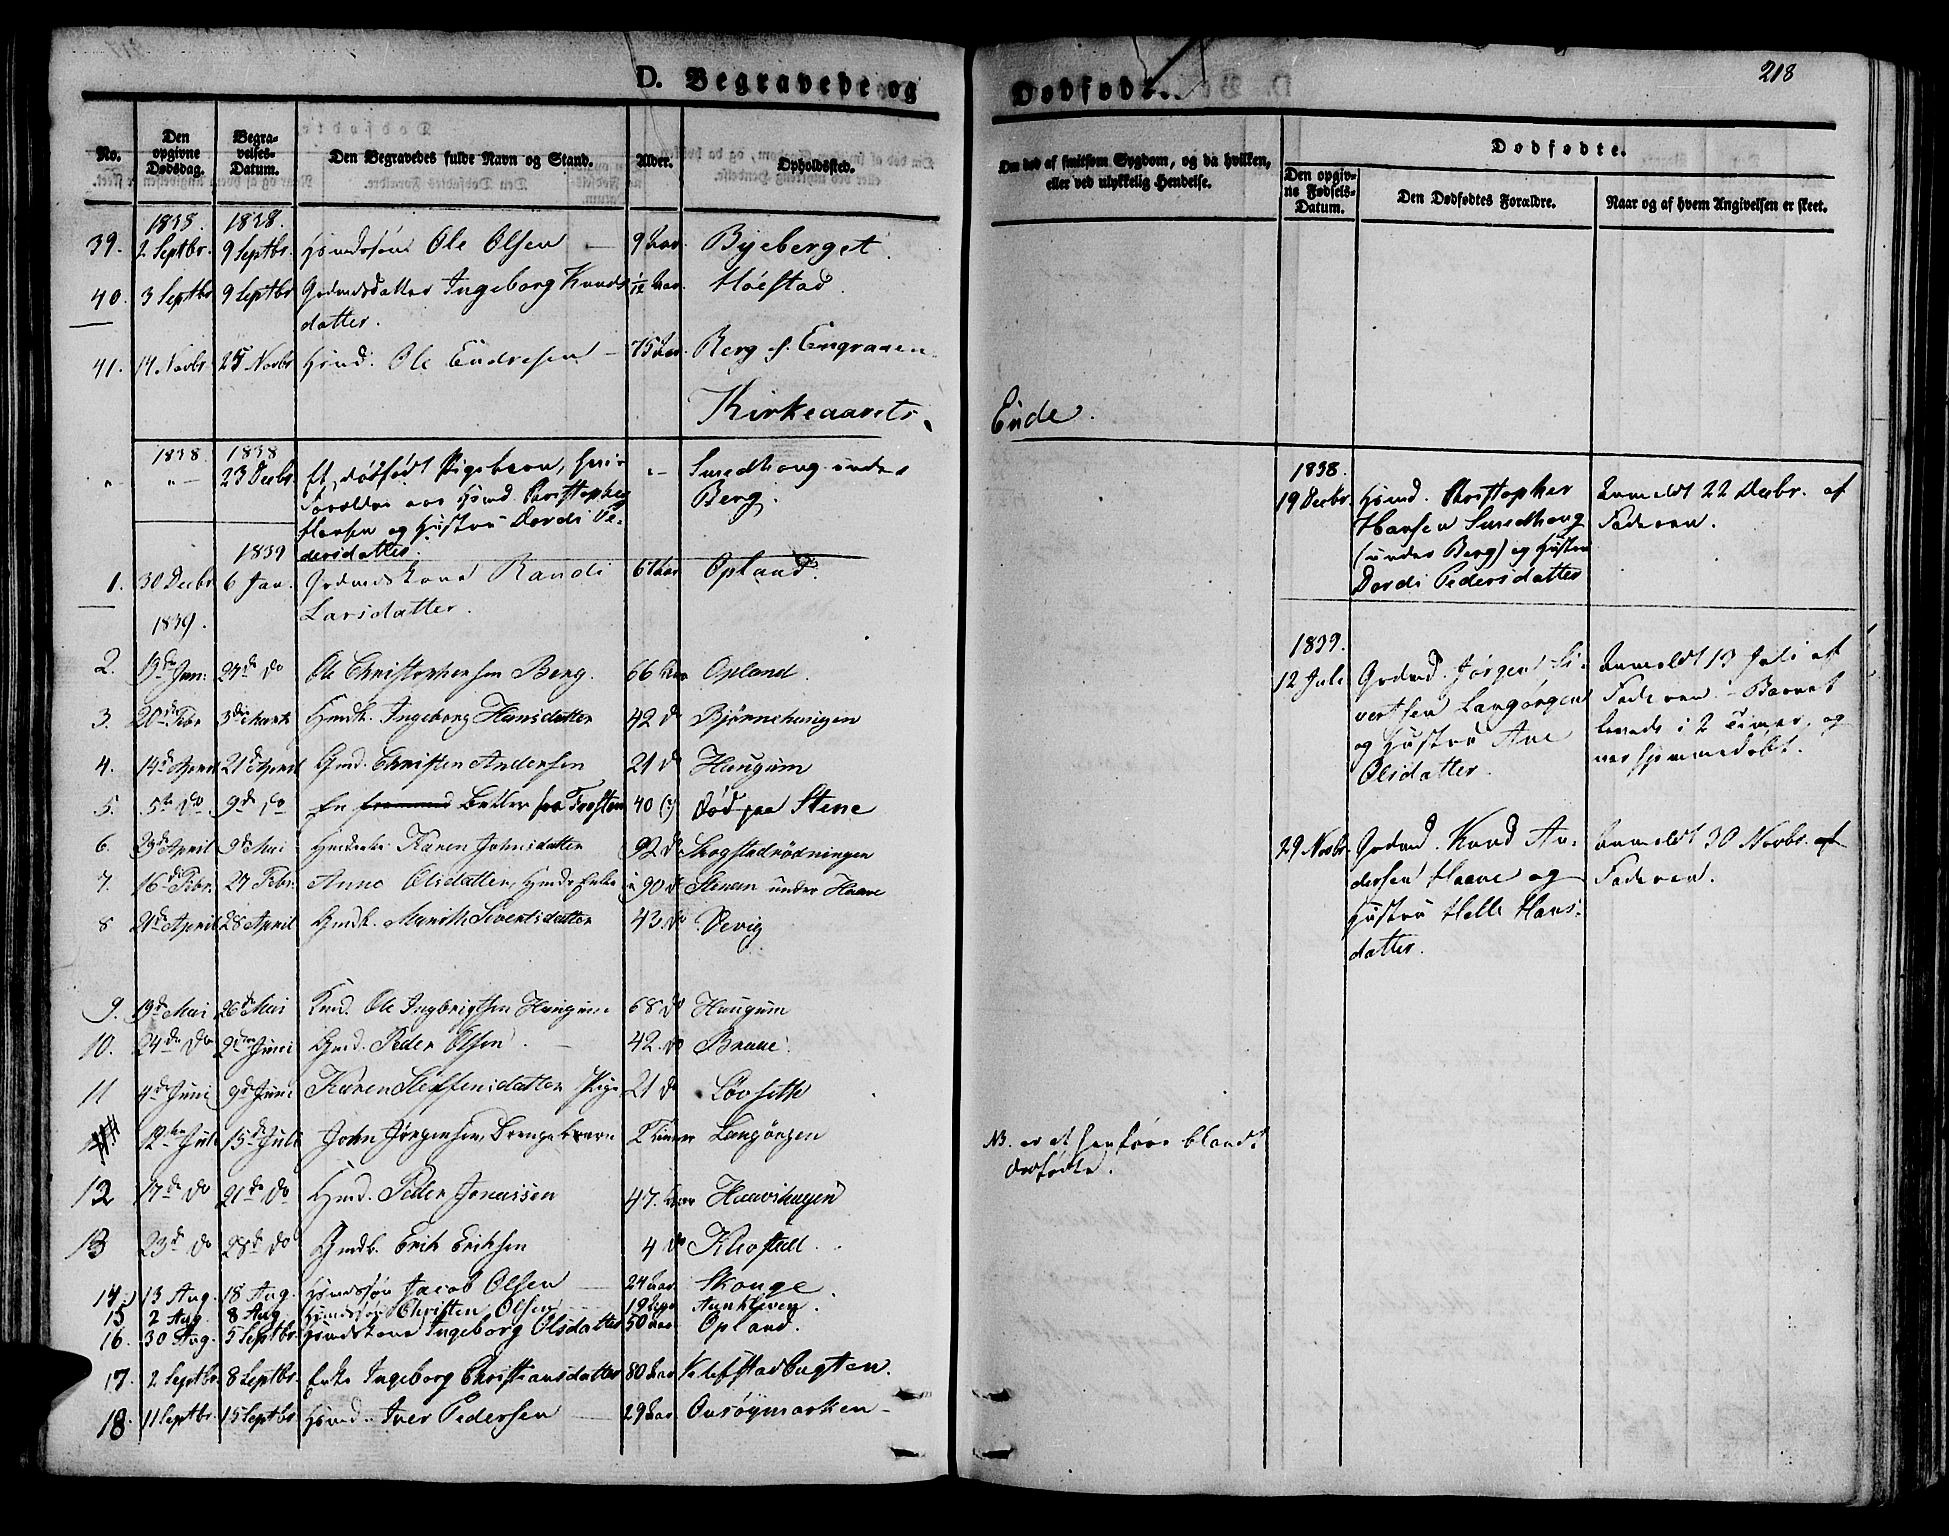 218
D. Begravede og
Dødfødte.
No.
Den opgivne Dødsdag.
Begravelses-Datum.
Den Begravedes fulde Navn og Stand.
Alder.
Opholdssted.
Om død af smitsom Sygdom, og da hvilken,
eller ved ulykkelig Hendelse.
Dødfødte.
Den opgivne Fødsels-Datum.
Den Dødfødtes Forældre.
Naar og af hvem Angivelsen er skeet.
1838. 1838.
39. 2 Septbr. 9 Septbr. Hmdssøn Ole Olsen — 9 Aar Byeberget.
40. 3 Septbr 9 Septbr Grdmdsdatter Ingeborg Knuds 1/12 Aar Høistad.
datter.
41. 14 Novbr. 25 Novbr Hmd. Ole Endresen — 75 Aar Berg
Kirkeaarets
Ende.
1838. 1838
" " 23 Decbr Et dødfødt Pigebarn, hvis "- Smedhaug under
Forældre ere Hmd. Christopher Berg.
Hansen og Hustru Dordi Pe-
dersdatter.
1839
1. 30 Decbr 6 Jan. Grdmdskone Randi 67 Aar Opland.
Larsdatter.
1839.
2. 13de Jan. 27de Do Ole Christophersen Berg. 66 Aar Opland.
3. 20de Febr 3die Marts Hmdk. Ingeborg Hansdatter 42 do Bjørnehaugen
4. 14de April 21de April Gmd. Christen Andersen 21 do Haugum
5. 5te Do 9de Do En fremmed Betler fra Frosten 40 (?) død paa Stene
6. 23de April 9de Mai Hmdenke Karen Johnsdatter 92 do Skogstadrødningen
7. 16de Febr. 27 Febr. Anne Olsdatter, Hmds Enke 90 do Stenen under Haave
8 21de April 28 April Gmdk. Marith Sivertsdatter 43. do Vevig
9. 19de Mai 26de Mai Kmd. Ole Ingbrigtsen Haugum 68 do Haugum
10. 24de Do 2den Juni Gmd. Peder Olsen. — 42. do Braae.
11 4de Juni 9de Juni Karen Steffensdatter Pige 21 do Løvseth
12te Juli 15de Juli John Jørgensen, Drengebarn 2 Timer Langørgen
12 17de Do 21de Do Hmd. Peder Jonassen 47. Aar Haavshagen
13 23de Do 28de Do Gmdb. Erik Eriksen 4 do Klostad.
14. 13 Aug. 18 Aug. Hmdssøn Jacob Olsen — 24 Aar Skouge
15 2 Aug. 8 Aug. Hmdssøn Christen Olsen 19 Aar Aunkleven.
16. 30 Aug. 5 Septbr. Hmdskone Ingeborg Olsdatter 50 Aar Opland.
17. 2 Septbr. 8 Septbr. Enke Ingeborg Christiansdatter 80 Aar Klefstadbugten.
18. 11 Septbr. 15 Septbr. Hmd. Iver Pedersen — 29 Aar Onsøymarken
NB. er et hertførr blandt
dødfødte.
1838.
19 Decbr. Hmd. Christopher Anmeldt 22 Decbr. af
Hansen Smedhaug Faderen.
(under Berg) og Hustru
Dordi Pedersdatter
1839.
12 Juli Grdmd. Jørgen Si- Anmeldt 13 Juli af
vertsen Langørgen Faderen — Barnet
og Hustru Ane levede i 2 Timer, og
Olsdatter. var hjemmedøbt.
29 Novbr. Grdmd. Knud An- Anmeldt 30 Novbr. af
dersen Haave og Faderen.
Hustru Helle Hans-
datter.